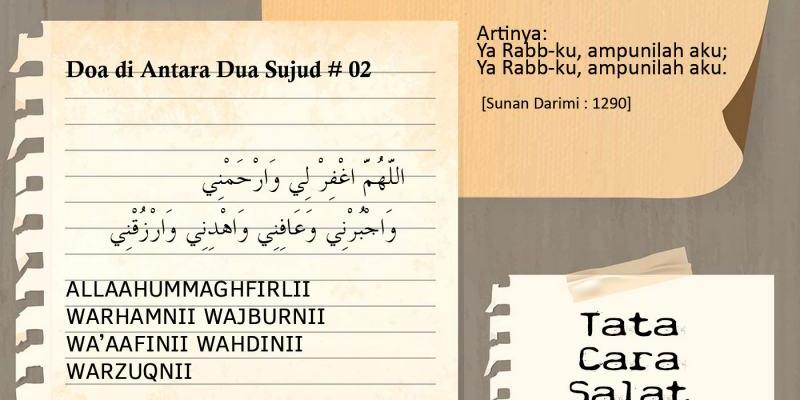 Doa di Antara Dua Sujud # 02
اللّهُمّ اغْفِرْ لِي وَارْحَمْنِي
وَاجْبُرْنِي وَعَافِنِي وَاهْدِنِي وَارْزُقْنِي
ALLAAHUMMAGHFIRLII
WARHAMNII WAJBURNII
WA’AAFINII WAHDINII
WARZUQNII
Artinya:
Ya Rabb-ku, ampunilah aku;
Ya Rabb-ku, ampunilah aku.
[Sunan Darimi : 1290]
Tata
Cara
Salat